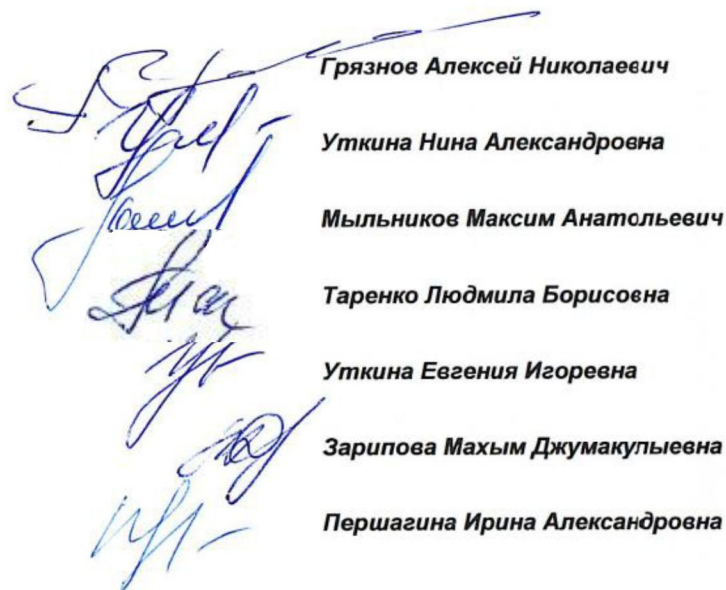 Грязнов Алексей Николаевич
Уткина Нина Александровна
Мыльников Максим Анатольевич
Таренко Людмила Борисовна
Уткина Евгения Игоревна
Зарипова Махым Джумакулыевна
Першагина Ирина Александровна